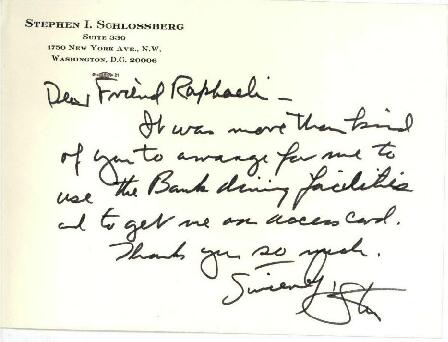 STEPHEN I. SCHLOSSBERG
SUITE 330
1750 NEW YORK AVE., N.W.
WASHINGTON, D.C. 20006
Dear Friend Raphaeli -
It was more than kind
of you to arrange for me to
use the Bank dining facilities
and to get me an access card.
Thank you so much.
Sincerely, Steve